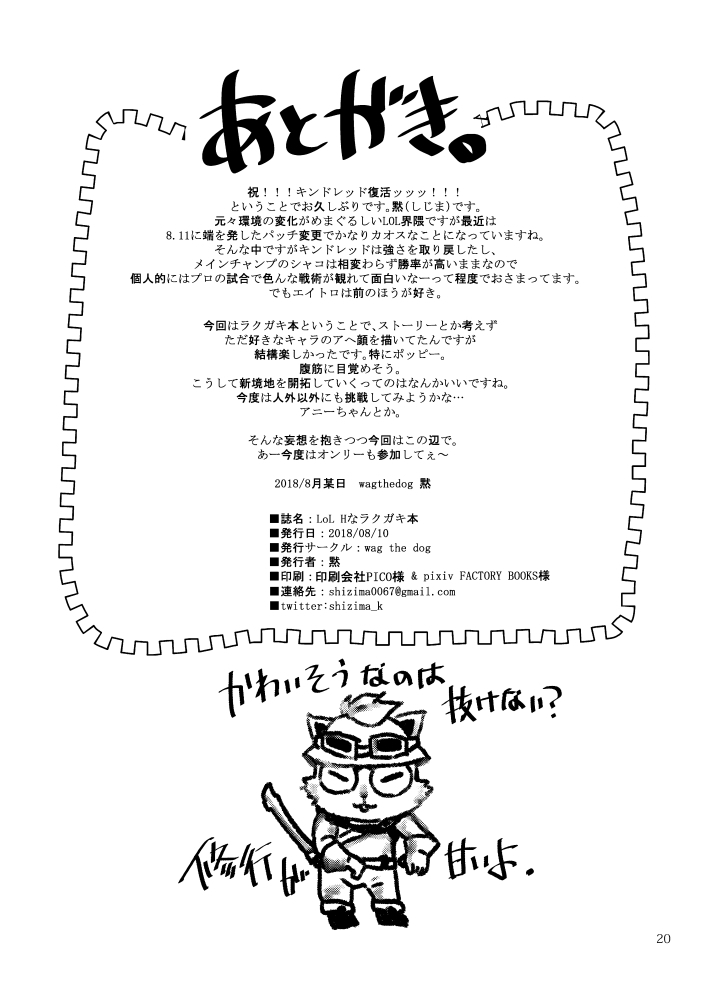 あとがき。
祝！！！キンドレッド復活ッッッ！！！
ということでお久しぶりです。黙(しじま)です。
元々環境の変化がめまぐるしいLOL界隈ですが最近は
8.11に端を発したパッチ変更でかなりカオスなことになっていますね。
そんな中ですがキンドレッドは強さを取り戻したし、
メインチャンプのシャコは相変わらず勝率が高いままなので
個人的にはプロの試合で色んな戦術が観れて面白いなーって程度でおさまってます。
でもエイトロは前のほうが好き。
今回はラクガキ本ということで、ストーリーとか考えず
ただ好きなキャラのアへ顔を描いてたんですが
結構楽しかったです。特にポッピー。
腹筋に目覚めそう。
こうして新境地を開拓していくってのはなんかいいですね。
今度は人外以外にも挑戦してみようかな…
アニーちゃんとか。
そんな妄想を抱きつつ今回はこの辺で。
あー今度はオンリーも参加してぇ～
2018/8月某日　wagthedog 黙
■誌名：LoL Hなラクガキ本
■発行日：2018/08/10
■発行サークル：wag the dog
■発行者：黙
■印刷：印刷会社PICO様 & pixiv FACTORY BOOKS様
■連絡先：shizima0067@gmail.com
■twitter:shizima_k
かわいそうなのは
抜けない？
修行が
甘いよ．
20